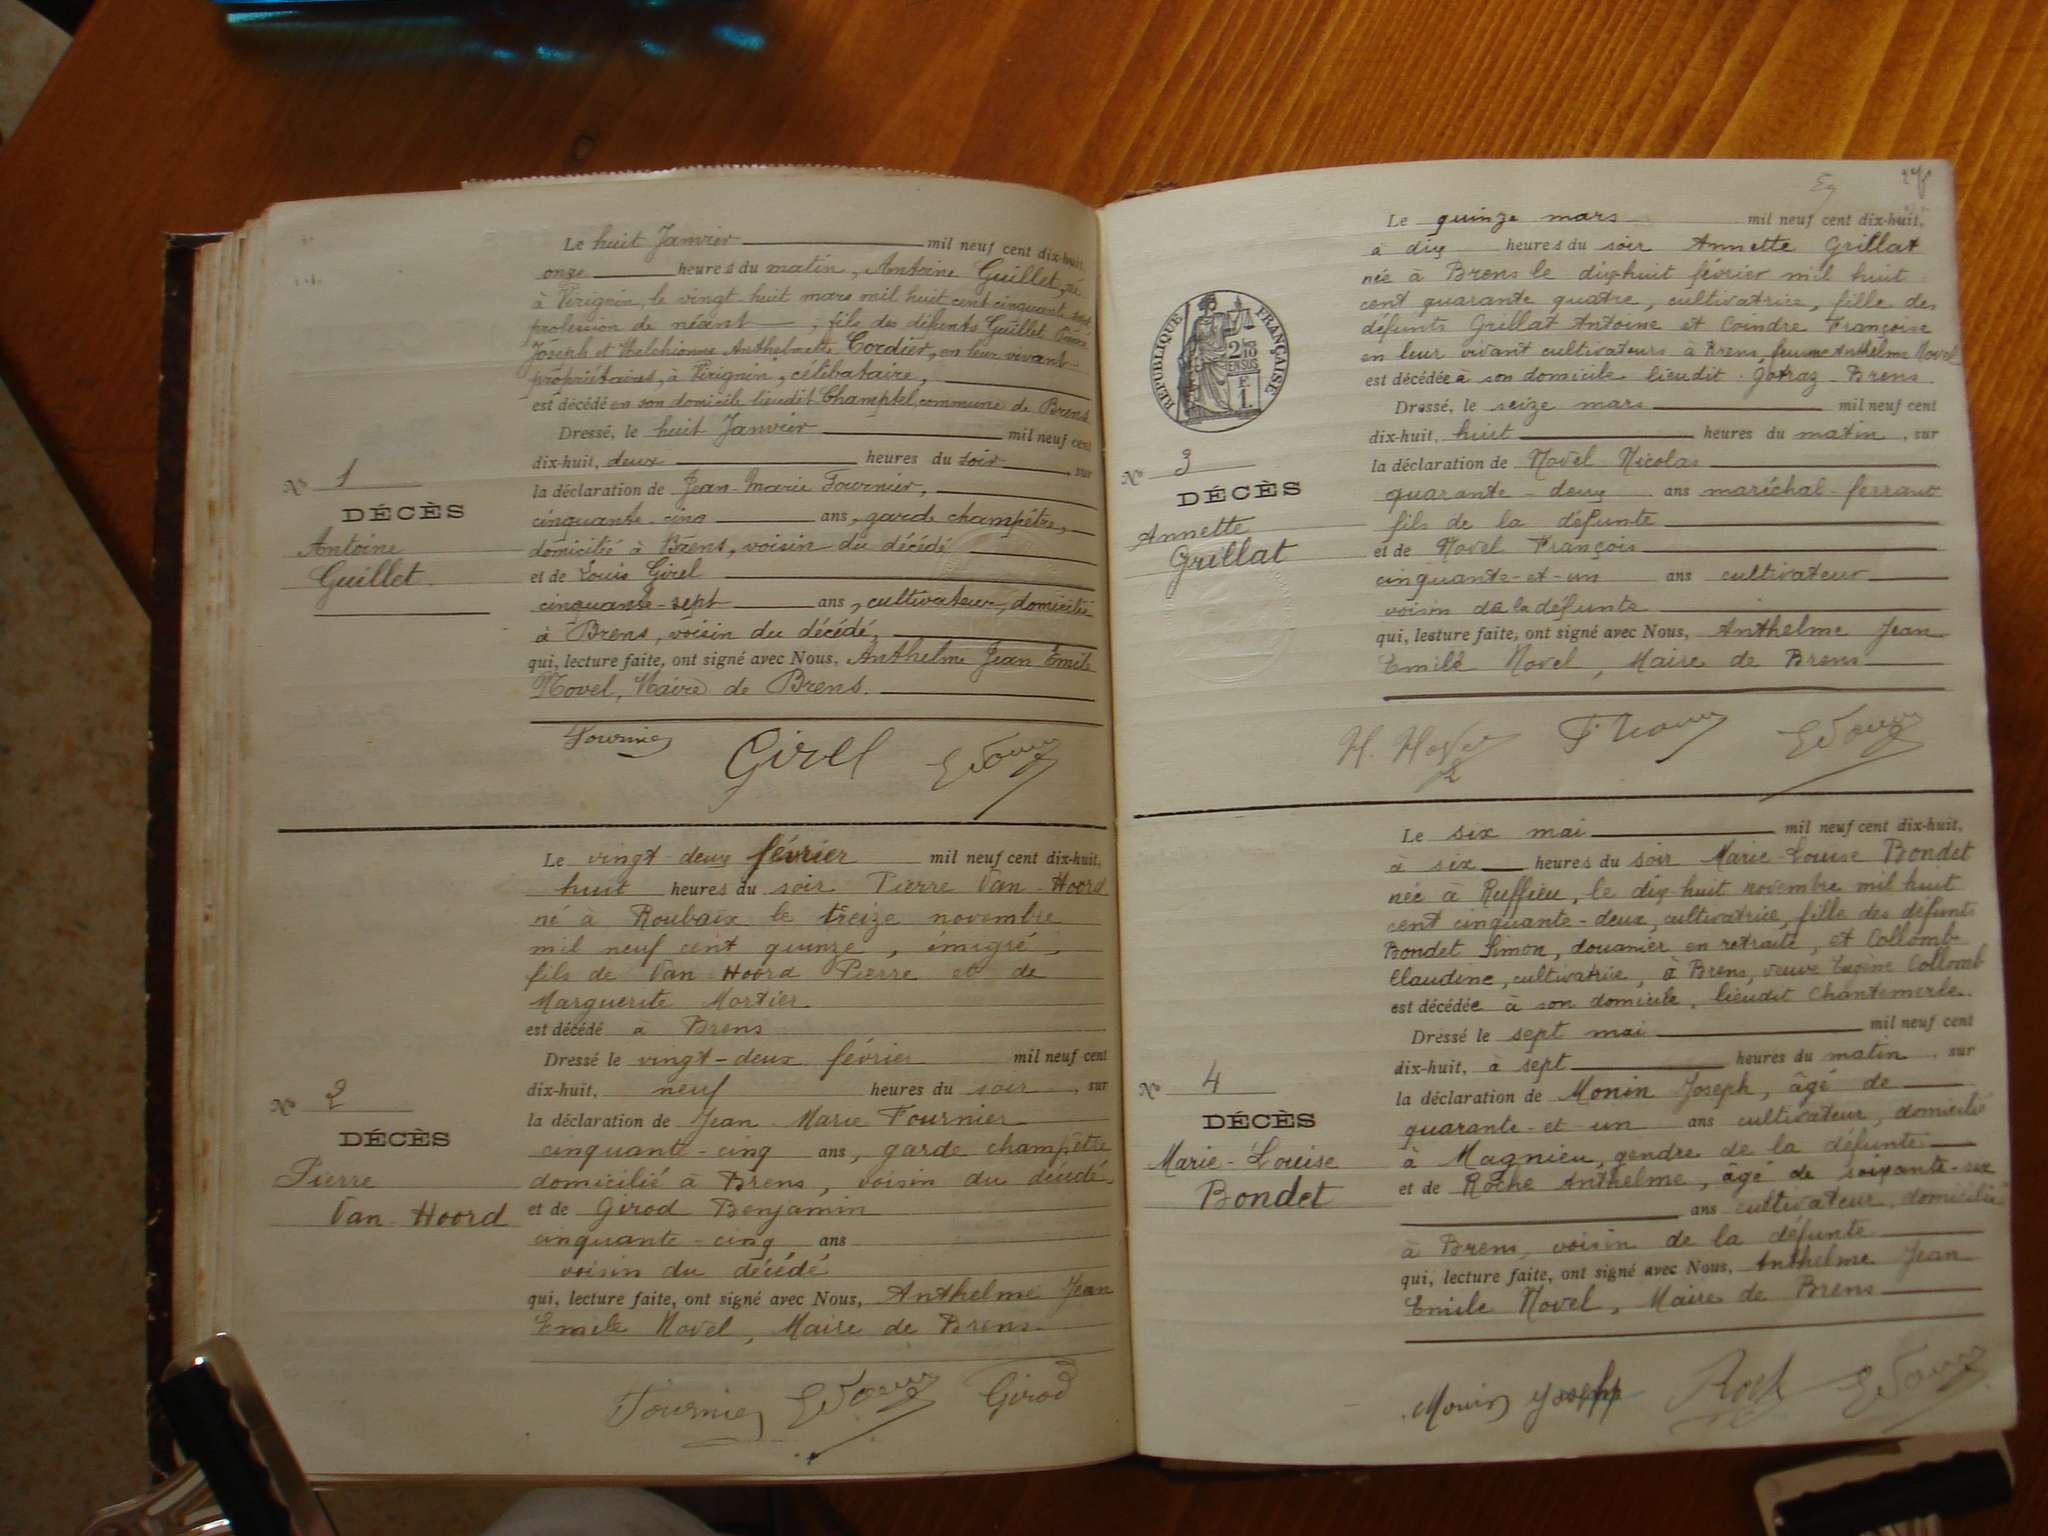 Le huit Janvier mil neuf cent dix-huit,
onze heures du matin, Antoine Guillet, né
à Virignin, le vingt-huit mars mil huit cent cinquante sept,
profession de néant, fils des défunts Guillet
Joseph et Melchionne Anthelmette Cordier, en leur vivant
propriétaires, à Virignin, célébataire,
est décédé en son domicile lieudit Champtel, commune de Brens
Dressé, le huit Janvier mil neuf cent
dix-huit, deux heures du soir, sur
la déclaration de Jean-Marie Fournier,
cinquante-cinq ans, garde champêtre,
domicilié à Brens, voisin du décédé
et de Louis Girel
cinquante-sept ans, cultivateur, domicilié
à Brens, voisin du décédé,
qui, lecture faite, ont signé avec Nous, Anthelme Jean Emile
Novel, Maire de Brens.
No 1
DÉCÈS
Antoine
Guillet
Fournier Girel
Le vingt-deux février mil neuf cent dix-huit,
huit heures du soir Pierre Van-Hoord
né à Roubaix le treize novembre
mil neuf cent quinze, émigré,
fils de Van Hoord Pierre et de
Marguerite Mortier
est décédé à Brens
Dressé le vingt-deux février mil neuf cent
dix-huit, neuf heures du soir, sur
la déclaration de Jean-Marie Fournier
cinquante-cinq ans, garde champêtre
domicilié à Brens, voisin du décédé
et de Girod Benjamin
cinquante-cinq ans
voisin du décédé
qui, lecture faite, ont signé avec Nous, Anthelme Jean
Emile Novel, Maire de Brens.
No 2
DÉCÈS
Pierre
Van-Hoord
Fournier Girod
Le quinze mars mil neuf cent dix-huit,
à dix heures du soir Annette Grillat
née à Brens le dix-huit février mil huit
cent quarante quatre, cultivatrice, fille des
défunts Grillat Antoine et Coindre Françoise
en leur vivant cultivateurs à Brens, femme Anthelme Novel
est décédée à son domicile lieudit Gotraz-Brens
Dressé, le seize mars mil neuf cent
dix-huit, huit heures du matin, sur
la déclaration de Novel Nicolas
quarante-deux ans maréchal-ferrant
fils de la défunte
et de Novel François
cinquante-et-un ans cultivateur
voisin de la défunte
qui, lecture faite, ont signé avec Nous, Anthelme Jean
Emile Novel, Maire de Brens
RÉPUBLIQUE FRANÇAISE
2/10
EN SUS
F.
1.
No 3
DÉCÈS
Annette
Grillat
Le six mai mil neuf cent dix-huit,
à six heures du soir Marie-Louise Bondet
née à Ruffieu, le dix-huit novembre mil huit
cent cinquante-deux, cultivatrice, fille des défunts
Bondet Simon, douanier en retraite, et Collomb
Claudine, cultivatrice, à Brens, veuve Eugène Collomb
est décédée à son domicile, lieudit Chantemerle.
Dressé le sept mai mil neuf cent
dix-huit, à sept heures du matin, sur
la déclaration de Monin Joseph, âgé de
quarante-et-un ans cultivateur, domicilié
à Magnieu, gendre de la défunte
et de Roche Anthelme, âgé de soixante-six
ans cultivateur, domicilié
à Brens, voisin de la défunte
qui, lecture faite, ont signé avec Nous, Anthelme Jean
Emile Novel, Maire de Brens
No 4
DÉCÈS
Marie-Louise
Bondet
Monin Joseph